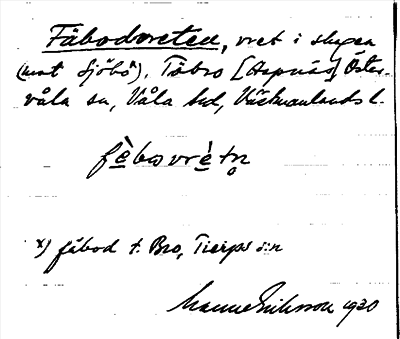 Fäbodvreten, vret i skogen
(mot Sjöbo x). Täbro [Aspnäs] Öster-
våla sn, Våla hd, Västmanlands l.
fèbωvrètn̥
x) fäbod t. Bro, Tierps s:n
Manne Eriksson 1930